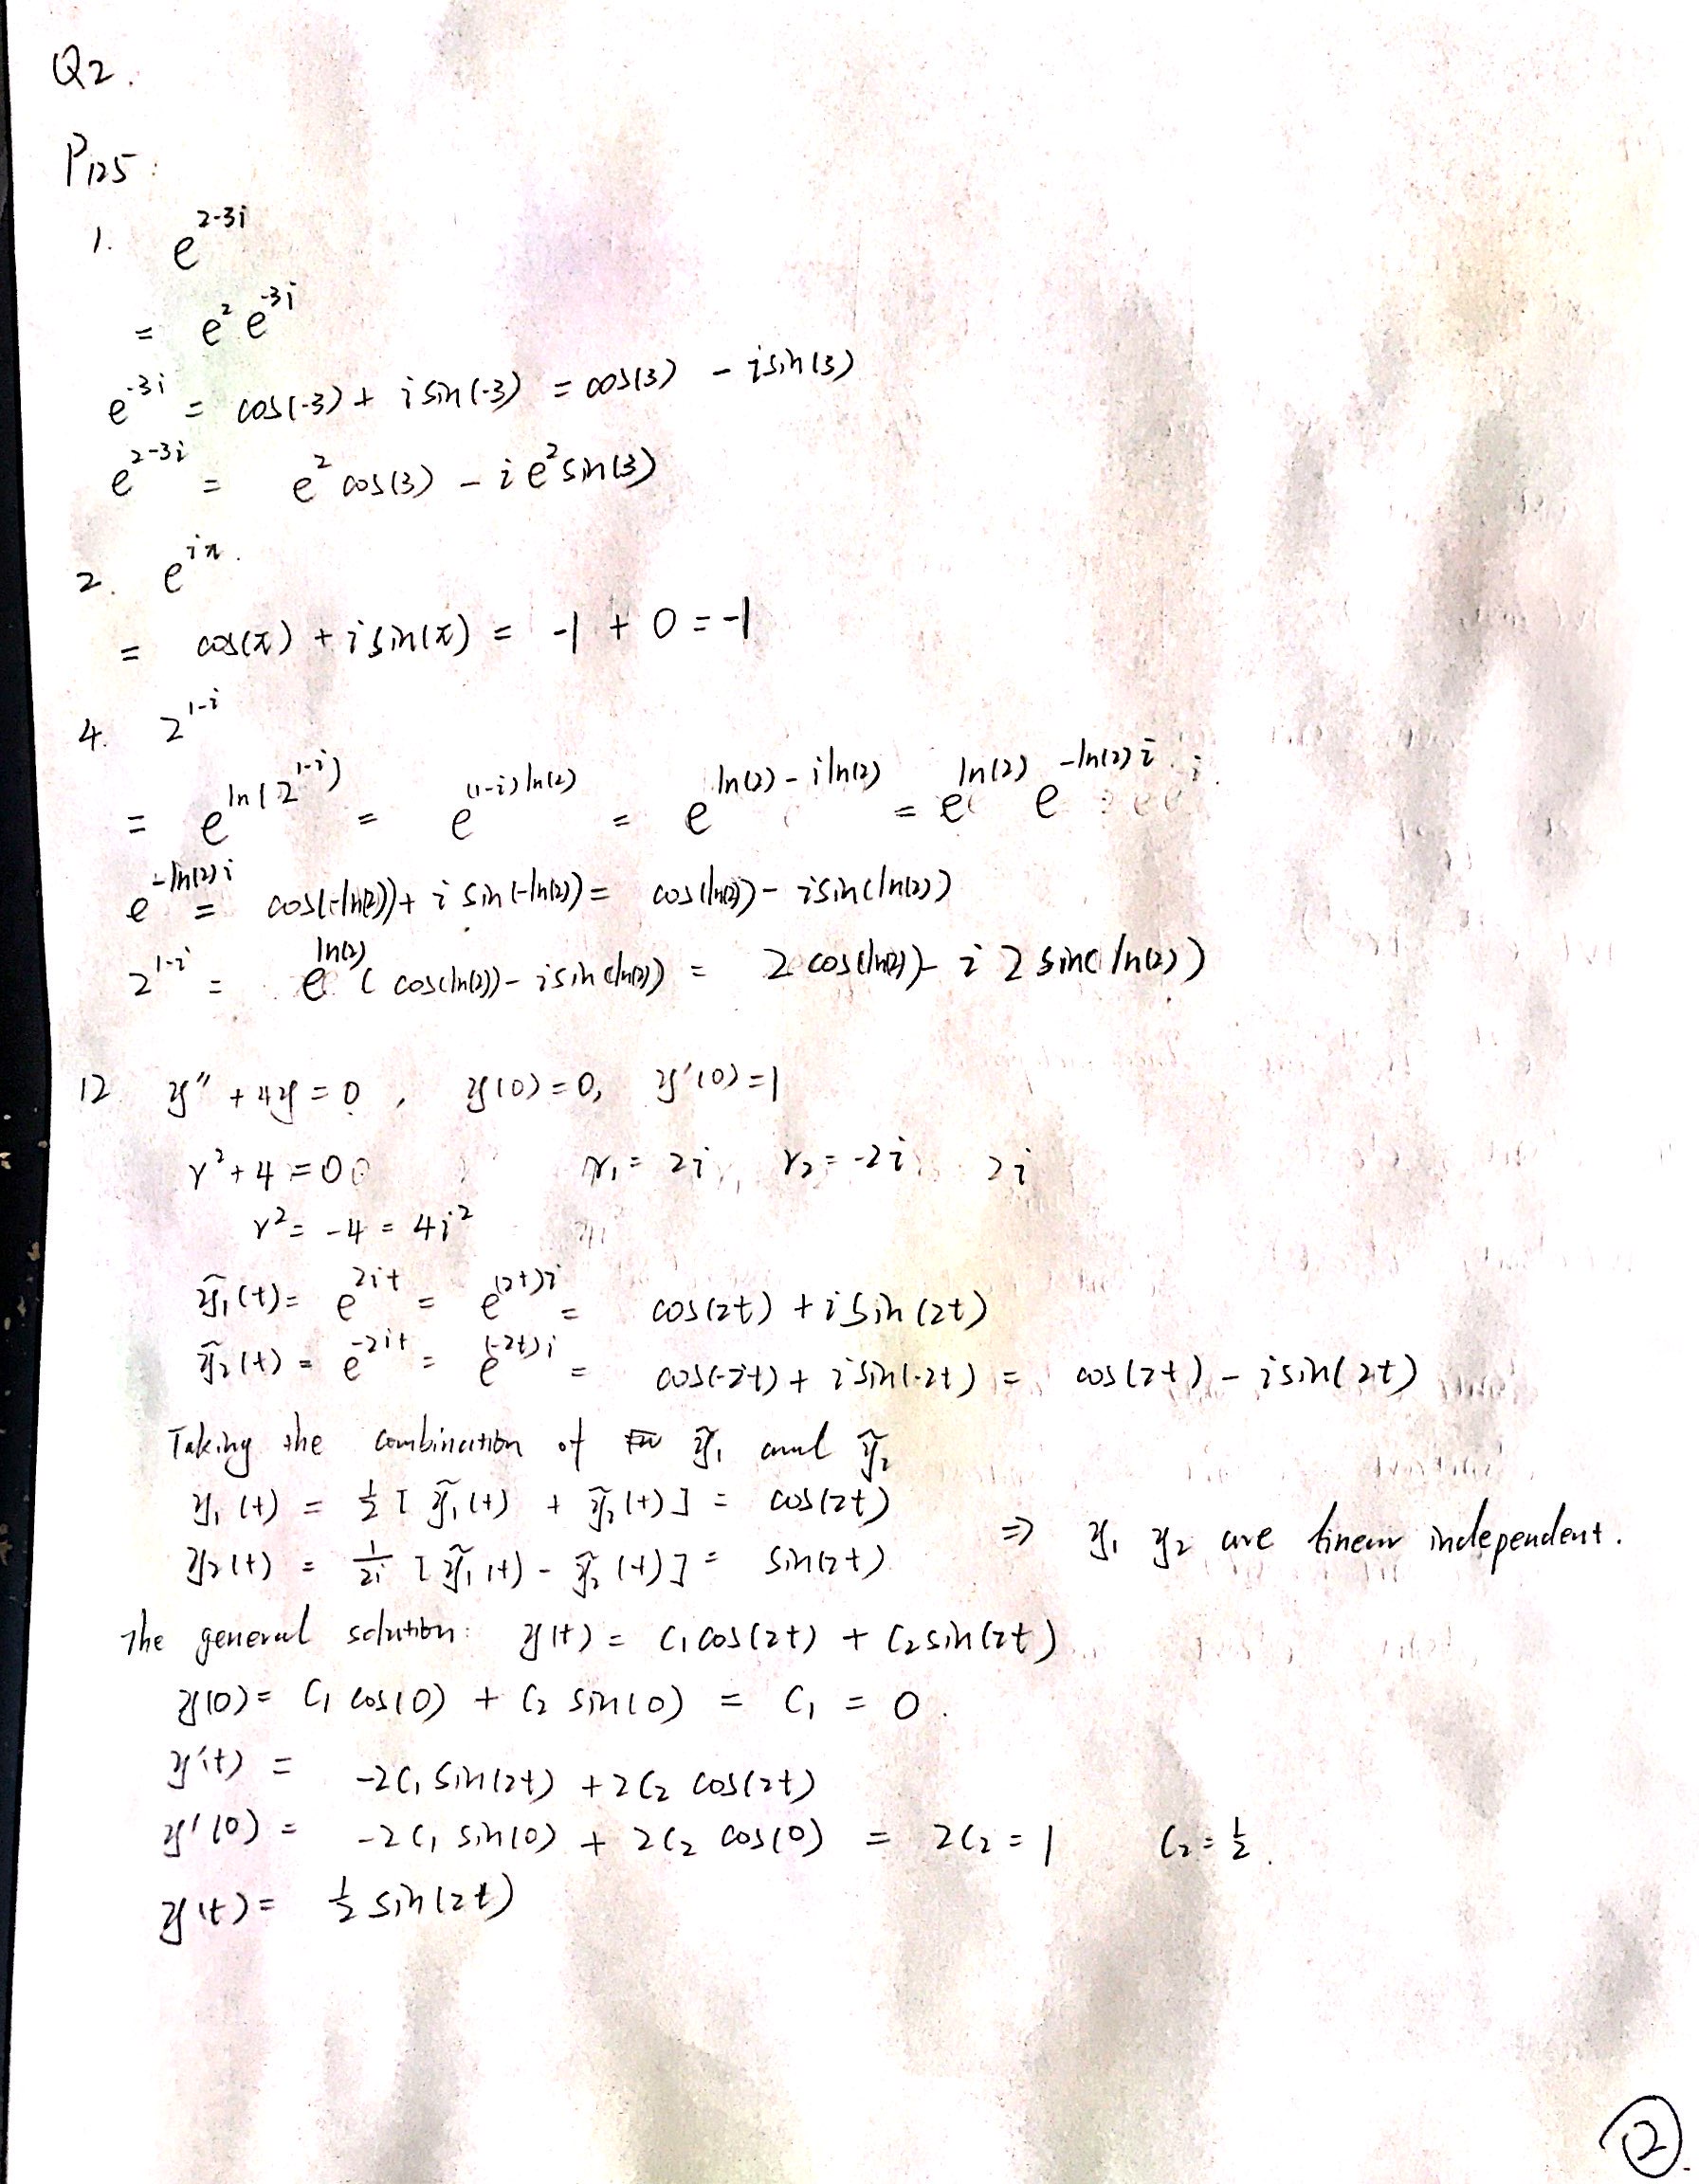 Q2.
P125:
1. e^{2-3i}
= e^2 e^{-3i}
e^{-3i} = cos(-3) + i sin(-3) = cos(3) - i sin(3)
e^{2-3i} = e^2 cos(3) - i e^2 sin(3)
2. e^{iπ}.
= cos(π) + i sin(π) = -1 + 0 = -1
4. 2^{1-i}
= e^{ln(2^{1-i})} = e^{(1-i)ln(2)} = e^{ln(2) - i ln(2)} = e^{ln(2)} e^{-ln(2)i}
e^{-ln(2)i} = cos(-ln(2)) + i sin(-ln(2)) = cos(ln(2)) - i sin(ln(2))
2^{1-i} = e^{ln(2)} (cos(ln(2)) - i sin(ln(2)) = 2 cos(ln(2)) - i 2 sin(ln(2))
12 y'' + 4y = 0, y(0) = 0, y'(0) = 1
r^2 + 4 = 0 r_1 = 2i, r_2 = -2i 2i
r^2 = -4 = 4i^2
ỹ_1(t) = e^{2it} = e^{(2t)i} = cos(2t) + i sin(2t)
ỹ_2(t) = e^{-2it} = e^{(-2t)i} = cos(-2t) + i sin(-2t) = cos(2t) - i sin(2t)
Taking the combination of ỹ_1 and ỹ_2
y_1(t) = 1/2 [ỹ_1(t) + ỹ_2(t)] = cos(2t)
y_2(t) = 1/2i [ỹ_1(t) - ỹ_2(t)] = sin(2t) ⇒ y_1 y_2 are linear independent.
The general solution: y(t) = C_1 cos(2t) + C_2 sin(2t)
y(0) = C_1 cos(0) + C_2 sin(0) = C_1 = 0.
y'(t) = -2C_1 sin(2t) + 2C_2 cos(2t)
y'(0) = -2C_1 sin(0) + 2C_2 cos(0) = 2C_2 = 1 C_2 = 1/2.
y(t) = 1/2 sin(2t)
②.